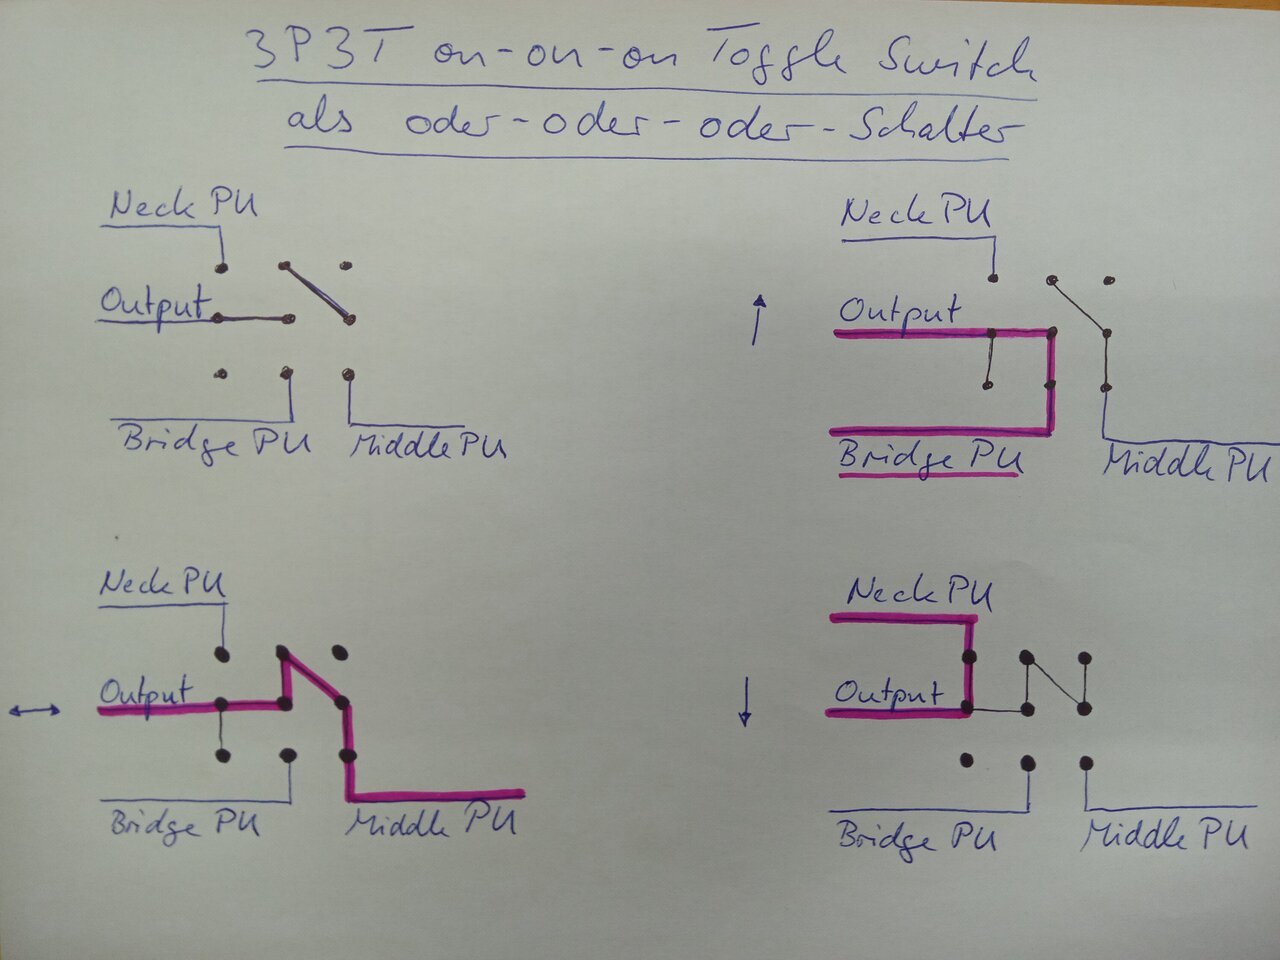 3P3T on-on-on Toggle Switch
als oder-oder-oder-Schalter
Neck PU
Output
Bridge PU
Middle PU
Neck PU
Output
Bridge PU
Middle PU
Neck PU
Output
Bridge PU
Middle PU
Neck PU
Output
Bridge PU
Middle PU